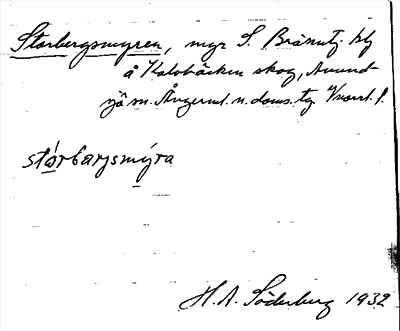 Storbergsmyren, mgr S. Bränntj. bg
å Kalvbäcken skog, Anund-
sjö sn. Ångerml. n. doms. tg Vnorrl. l.
stórbarjsmýra
H. A. Söderberg 1932